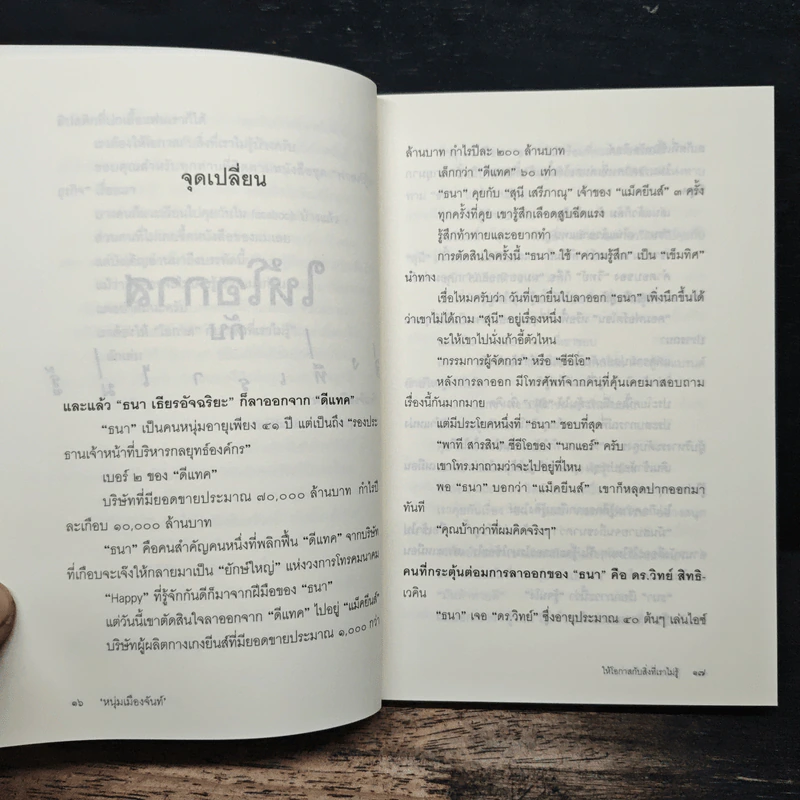 จุดเปลี่ยน
และแล้ว "ธนา เธียรอัจฉริยะ" ก็ลาออกจาก "ดีแทค"
"ธนา" เป็นคนหนุ่มอายุเพียง ๔๑ ปี แต่เป็นถึง "รองประ
ธานเจ้าหน้าที่บริหารกลยุทธ์องค์กร"
เบอร์ ๒ ของ "ดีแทค"
บริษัทที่มียอดขายประมาณ ๗๐,๐๐๐ ล้านบาท กำไรปี
ละเกือบ ๑๐,๐๐๐ ล้านบาท
"ธนา" คือคนสำคัญคนหนึ่งที่พลิกฟื้น "ดีแทค" จากบริษัท
ที่เกือบจะเจ๊งให้กลายมาเป็น "ยักษ์ใหญ่" แห่งวงการโทรคมนาคม
"Happy" ที่รู้จักกันดีก็มาจากฝีมือของ "ธนา"
แต่วันนี้เขาตัดสินใจลาออกจาก "ดีแทค" ไปอยู่ "แม็คยีนส์"
บริษัทผู้ผลิตกางเกงยีนส์ที่มียอดขายประมาณ ๑,๐๐๐ กว่า
๑๖ 'หนุ่มเมืองจันท์'
ล้านบาท กำไรปีละ ๒๐๐ ล้านบาท
เล็กกว่า "ดีแทค" ๖๐ เท่า
"ธนา" คุยกับ "สุนี เสรีภาณุ" เจ้าของ "แม็คยีนส์" ๓ ครั้ง
ทุกครั้งที่คุย เขารู้สึกเลือดสูบฉีดแรง
รู้สึกท้าทายและอยากทำ
การตัดสินใจครั้งนี้ "ธนา" ใช้ "ความรู้สึก" เป็น "เข็มทิศ"
นำทาง
เชื่อไหมครับว่า วันที่เขายื่นใบลาออก "ธนา" เพิ่งนึกขึ้นได้
ว่าเขาไม่ได้ถาม "สุนี" อยู่เรื่องหนึ่ง
จะให้เขาไปนั่งเก้าอี้ตัวไหน
"กรรมการผู้จัดการ" หรือ "ซีอีโอ"
หลังการลาออก มีโทรศัพท์จากคนที่คุ้นเคยมาสอบถาม
เรื่องนี้กันมากมาย
แต่มีประโยคหนึ่งที่ "ธนา" ชอบที่สุด
"พาที สารสิน" ซีอีโอของ "นกแอร์" ครับ
เขาโทร.มาถามว่าจะไปอยู่ที่ไหน
พอ "ธนา" บอกว่า "แม็คยีนส์" เขาก็หลุดปากออกมา
ทันที
"คุณบ้ากว่าที่ผมคิดจริงๆ"
คนที่กระตุ้นต่อมการลาออกของ "ธนา" คือ ดร.วิทย์ สิทธิ-
เวคิน
"ธนา" เจอ "ดร.วิทย์" ซึ่งอายุประมาณ ๔๐ ต้นๆ เล่นไอซ์
ให้โอกาสกับสิ่งที่เราไม่รู้ ๑๗